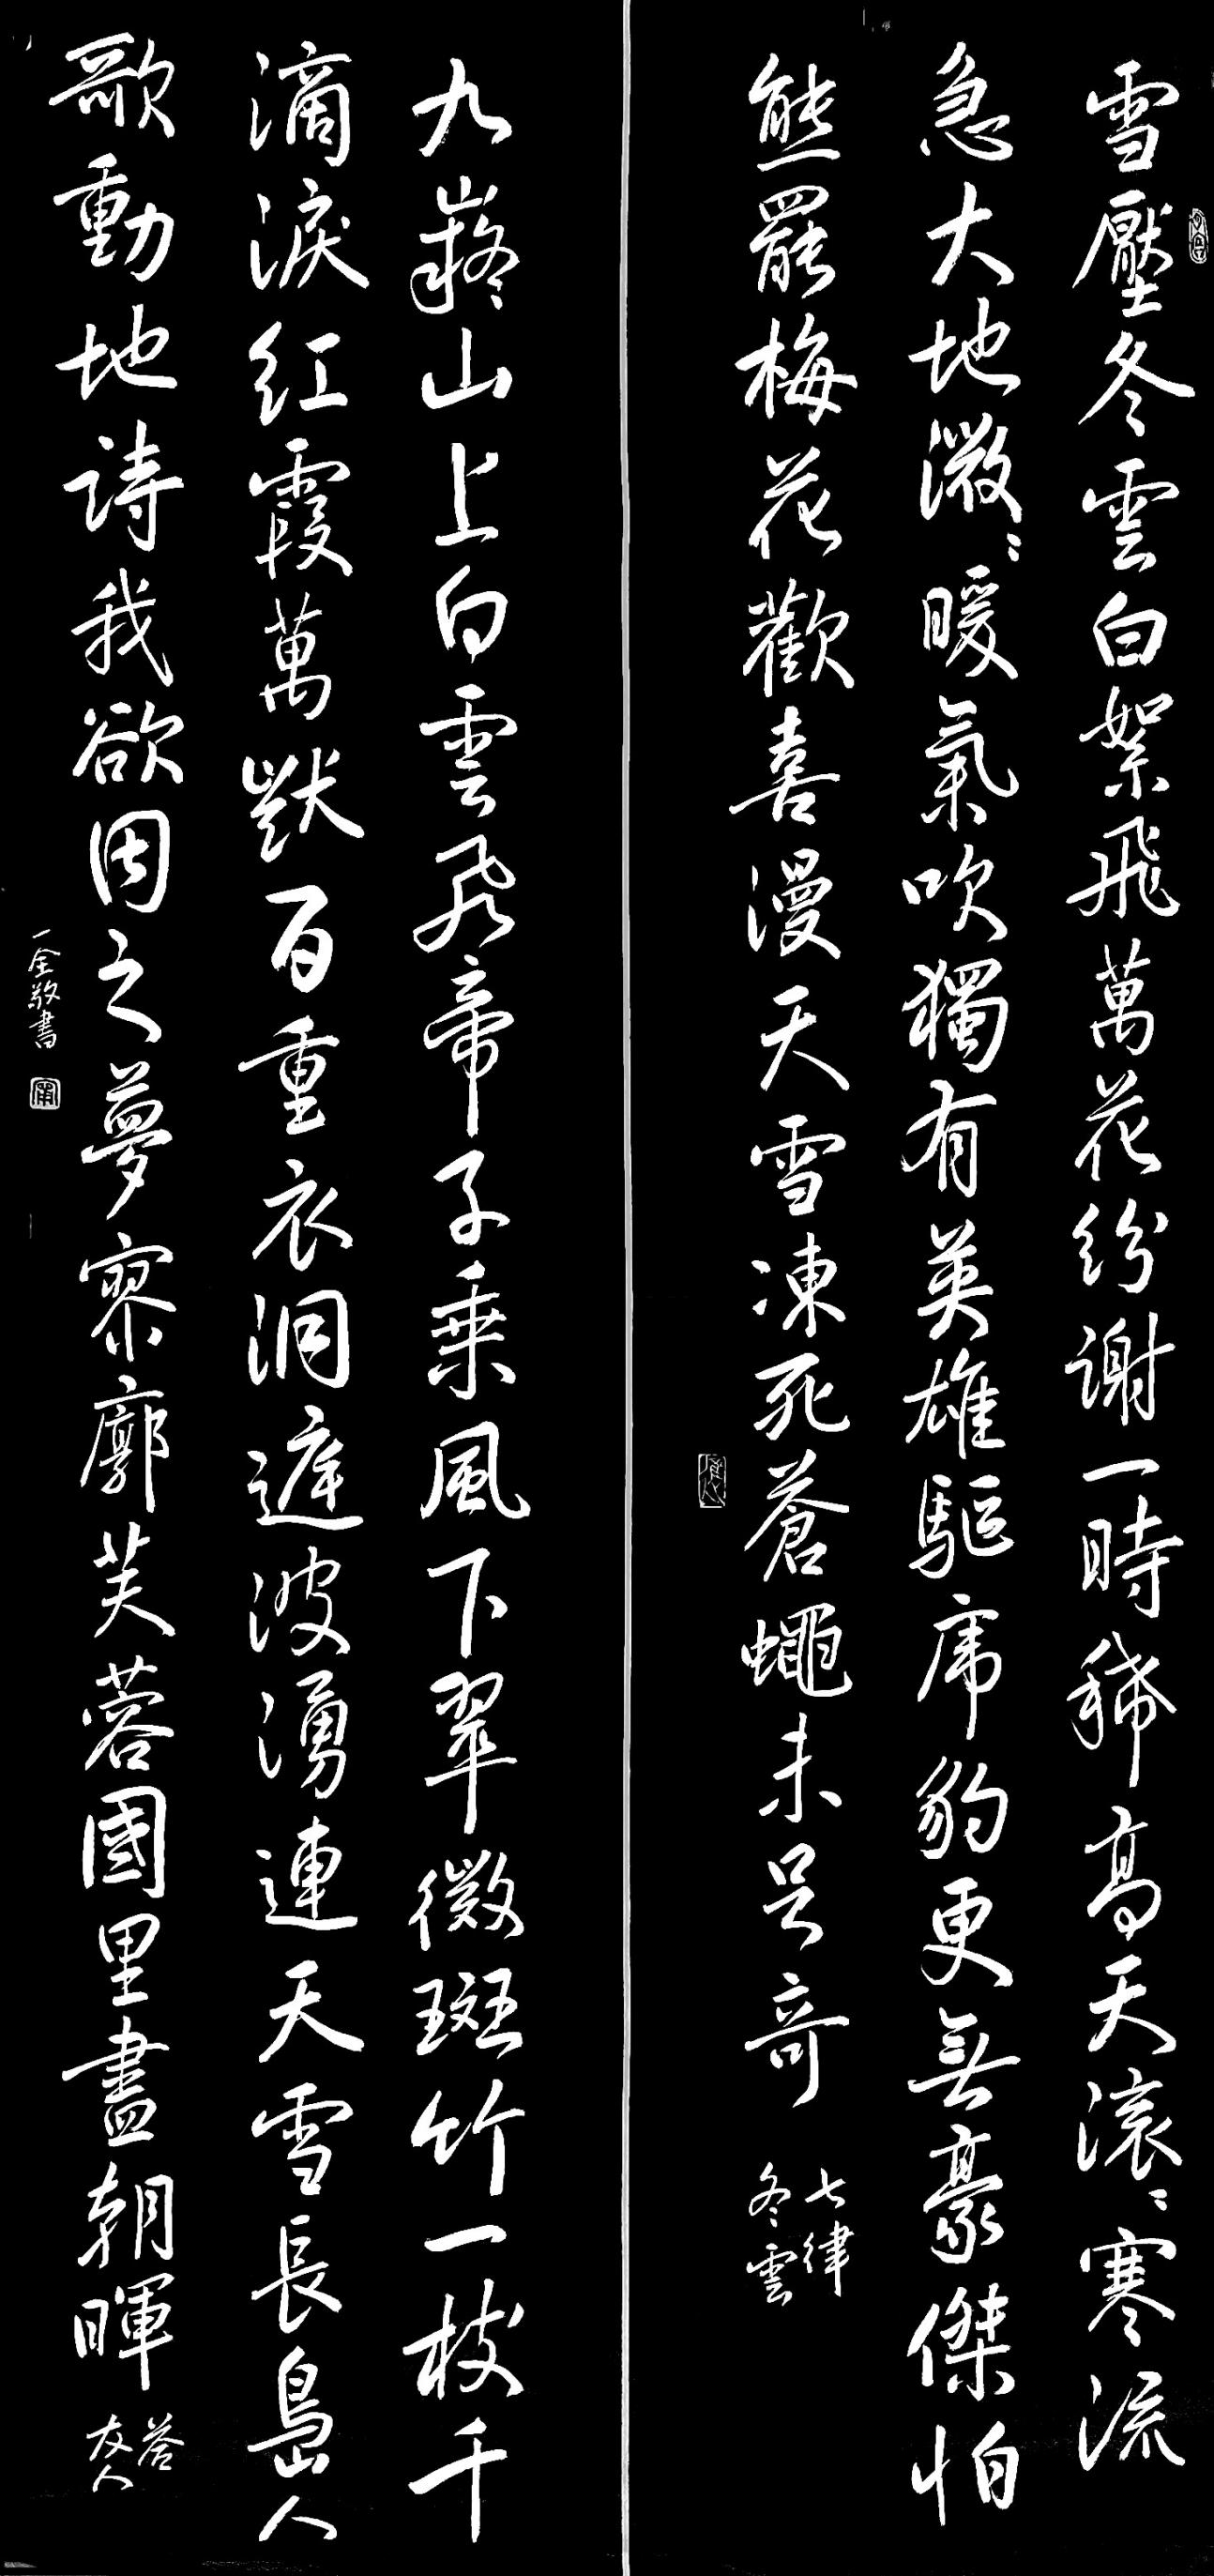 雪壓冬雲白絮飛萬花紛謝一時稀高天滾〻寒流
急大地微〻暖氣吹獨有英雄驅虎豹更無豪傑怕
熊羆梅花歡喜漫天雪凍死蒼蠅未足奇
七律
冬雲
九嶷山上白雲飛帝子乘風下翠微斑竹一枝千
滴淚紅霞萬獃百重衣洞庭波湧連天雪長島人
歌動地詩我欲因之夢寥廓芙蓉國里盡朝暉
答
友人
一全敬書